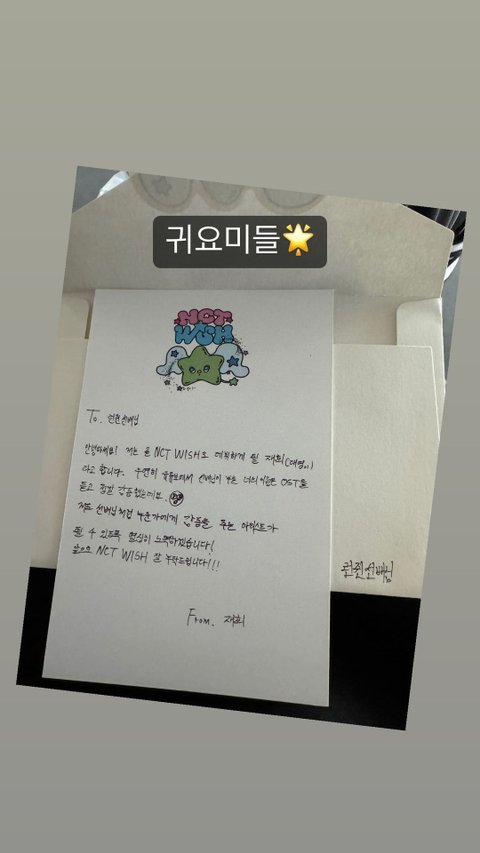 귀요미들🌟
NCT
WISH
To. 런쥔선배님
안녕하세요! 저는 올 NCT WISH로 데뷔하게 될 재희(대영이)
라고 합니다. 우연히 유튜브에서 선배님이 부른 너의 이름은 OST를
듣고 정말 감동했는데요.
저도 선배님처럼 누군가에게 감동을 주는 아티스트가
될 수 있도록 열심히 노력하겠습니다!
앞으로 NCT WISH 잘 부탁드립니다!!!
From. 재희
런쥔선배님